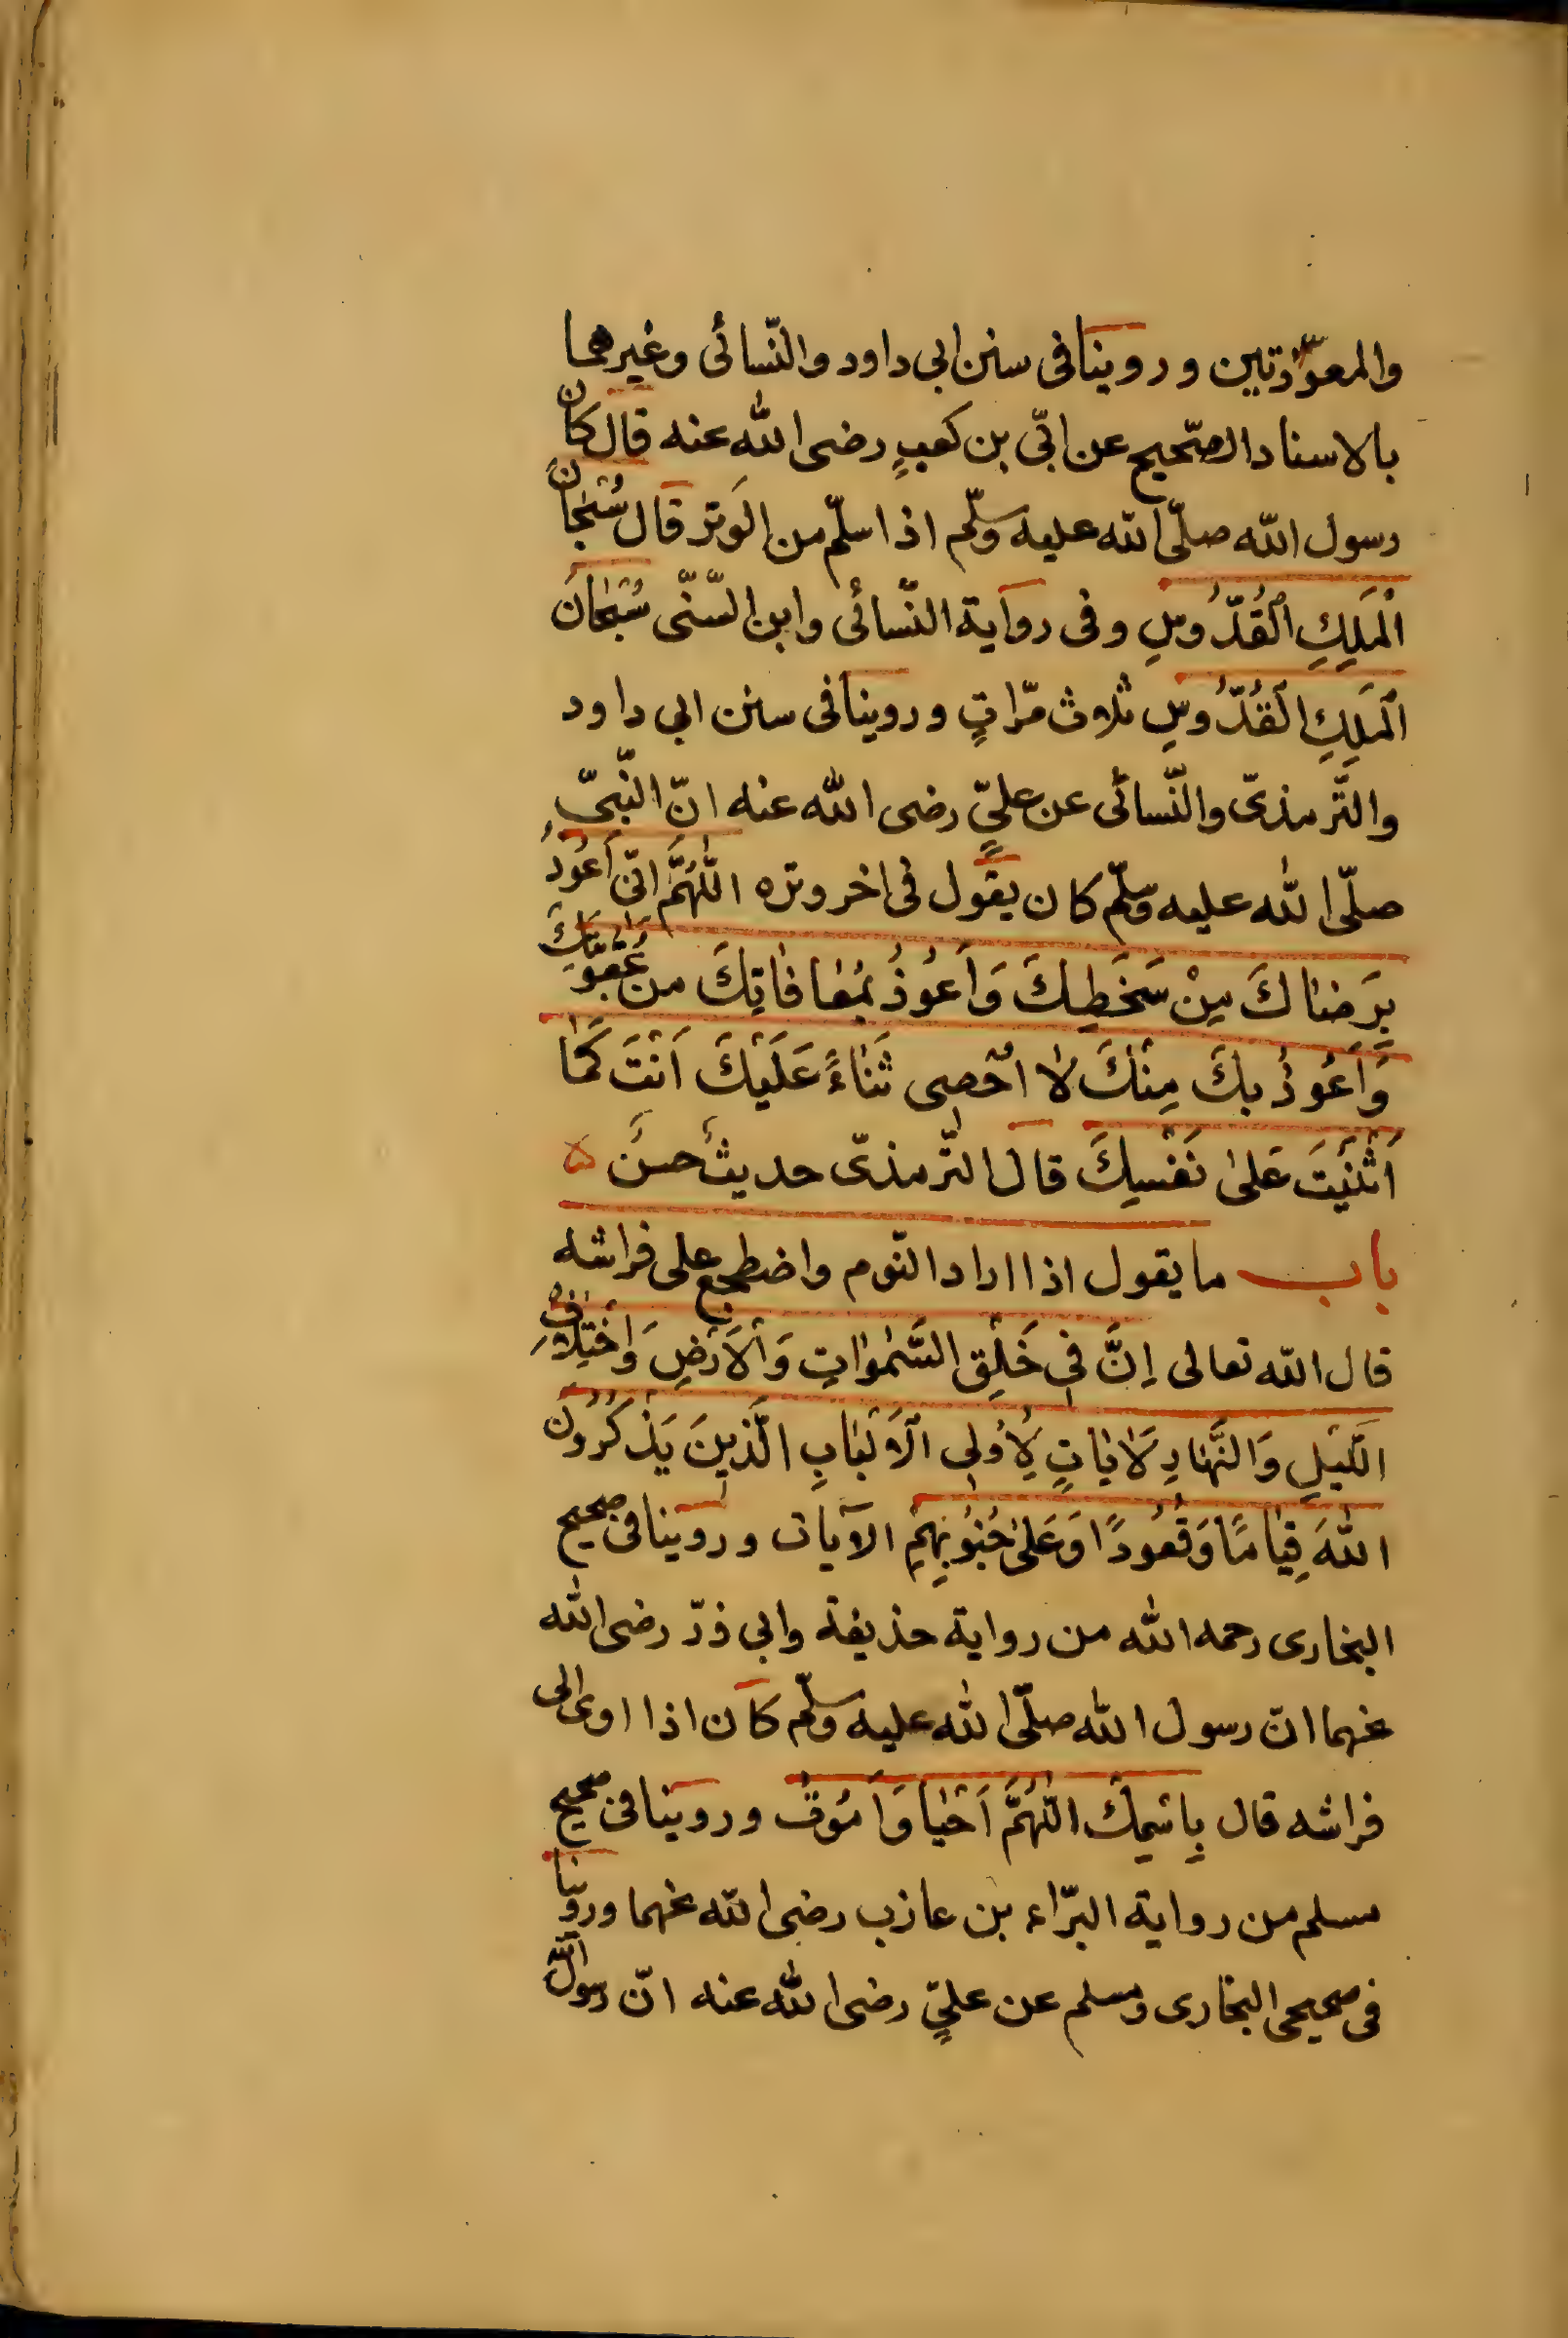 والمعوّذتين وروينا فى سنن ابى داود والنّسائى وغيرهما
بالاسناد الصّحيح عن ابىّ بن كعبٍ رضى الله عنه قال كان
رسول الله صلّى الله عليه وسلّم اذا سلّم من الوَتر قال سُبْحَانَ
اَلْمَلِكِ اَلْقُدُّوسِ وفى رواية النّسائى وابن السّنّى سُبْحَانَ
اَلْمَلِكِ اَلْقُدُّوسِ ثلاث مّراتٍ وروينا فى سنن ابى داود
والتّرمذىّ والنّسائى عن علىٍّ رضى الله عنه انّ النّبىّ
صلّى الله عليه وسلّم كان يقول فى اخر وتره اَللّٰهُمَّ اِنّى اَعُوذُ
بِرَضٰاكَ مِنْ سَخَطِكَ وَاَعُوذُ بمُعٰافٰاتِكَ من عُقُوبَتِكَ
وَاَعُوذُ بكَ مِنْكَ لٰا اُحْصِى ثَنٰاءً عَلَيْكَ اَنْتَ كَمٰا
اَثْنَيْتَ عَلىٰ نَفْسِكَ قال التّرمذىّ حديثٌ حسنٌ ه
باب ما يقول اذا اراد النّوم واضطجع على فراشه
قال الله تعالى اِنَّ فِى خَلْقِ السَّمٰوٰاتِ وَالْاَرْضِ وَاخْتِلاٰفِ
اللَّيْلِ وَالنَّهٰارِ لَاٰيٰاتٍ لِاُولِى اَلْاَلْبٰابِ الَّذِينَ يَذْكُرُونَ
اللهَ قِيٰامًا وَقُعُودًا وَعَلىٰ جُنُوبِهِمْ الآيات وروينا فى صحيح
البخارى رحمه الله من رواية حذيفة وابى ذرّ رضى الله
عنهما انّ رسول الله صلّى الله عليه وسلّم كان اذا اوى الى
فراشه قال بِاسْمِكَ اللّٰهُمَّ اَحْيٰا وَاَمُوتُ وروينا فى صحيح
مسلم من رواية البرّاء بن عازب رضى الله عنهما وروّينا
فى صحيحى البخارى ومسلم عن علىٍّ رضى الله عنه انّ رسول الله